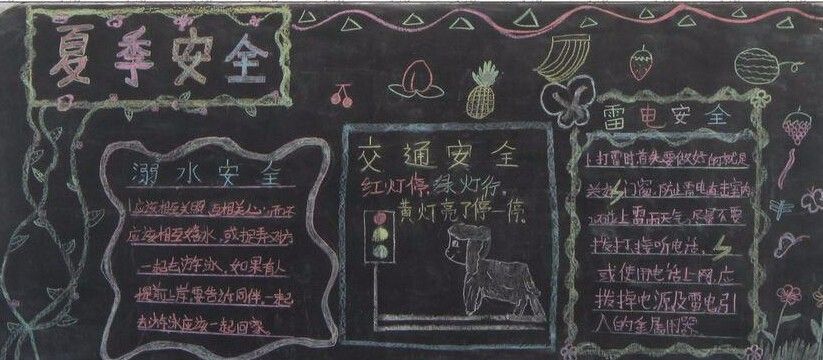 夏季安全
溺水安全
应该相互关照,互相关心,而不
应该相互绕水,或捉弄对方
一起去游泳,如果有人
提前上岸,要告诉同伴,一起
去游泳应该一起回家。
交通安全
红灯停,绿灯行,
黄灯亮了停一停。
雷电安全
1.打雷时首先要做好的就是
关好门窗,防止雷电直击室内
2.在雷雨天气,尽量不要
拨打、接听电话,
或使用电话上网,应
拨掉电源及雷电引
入的金属用器